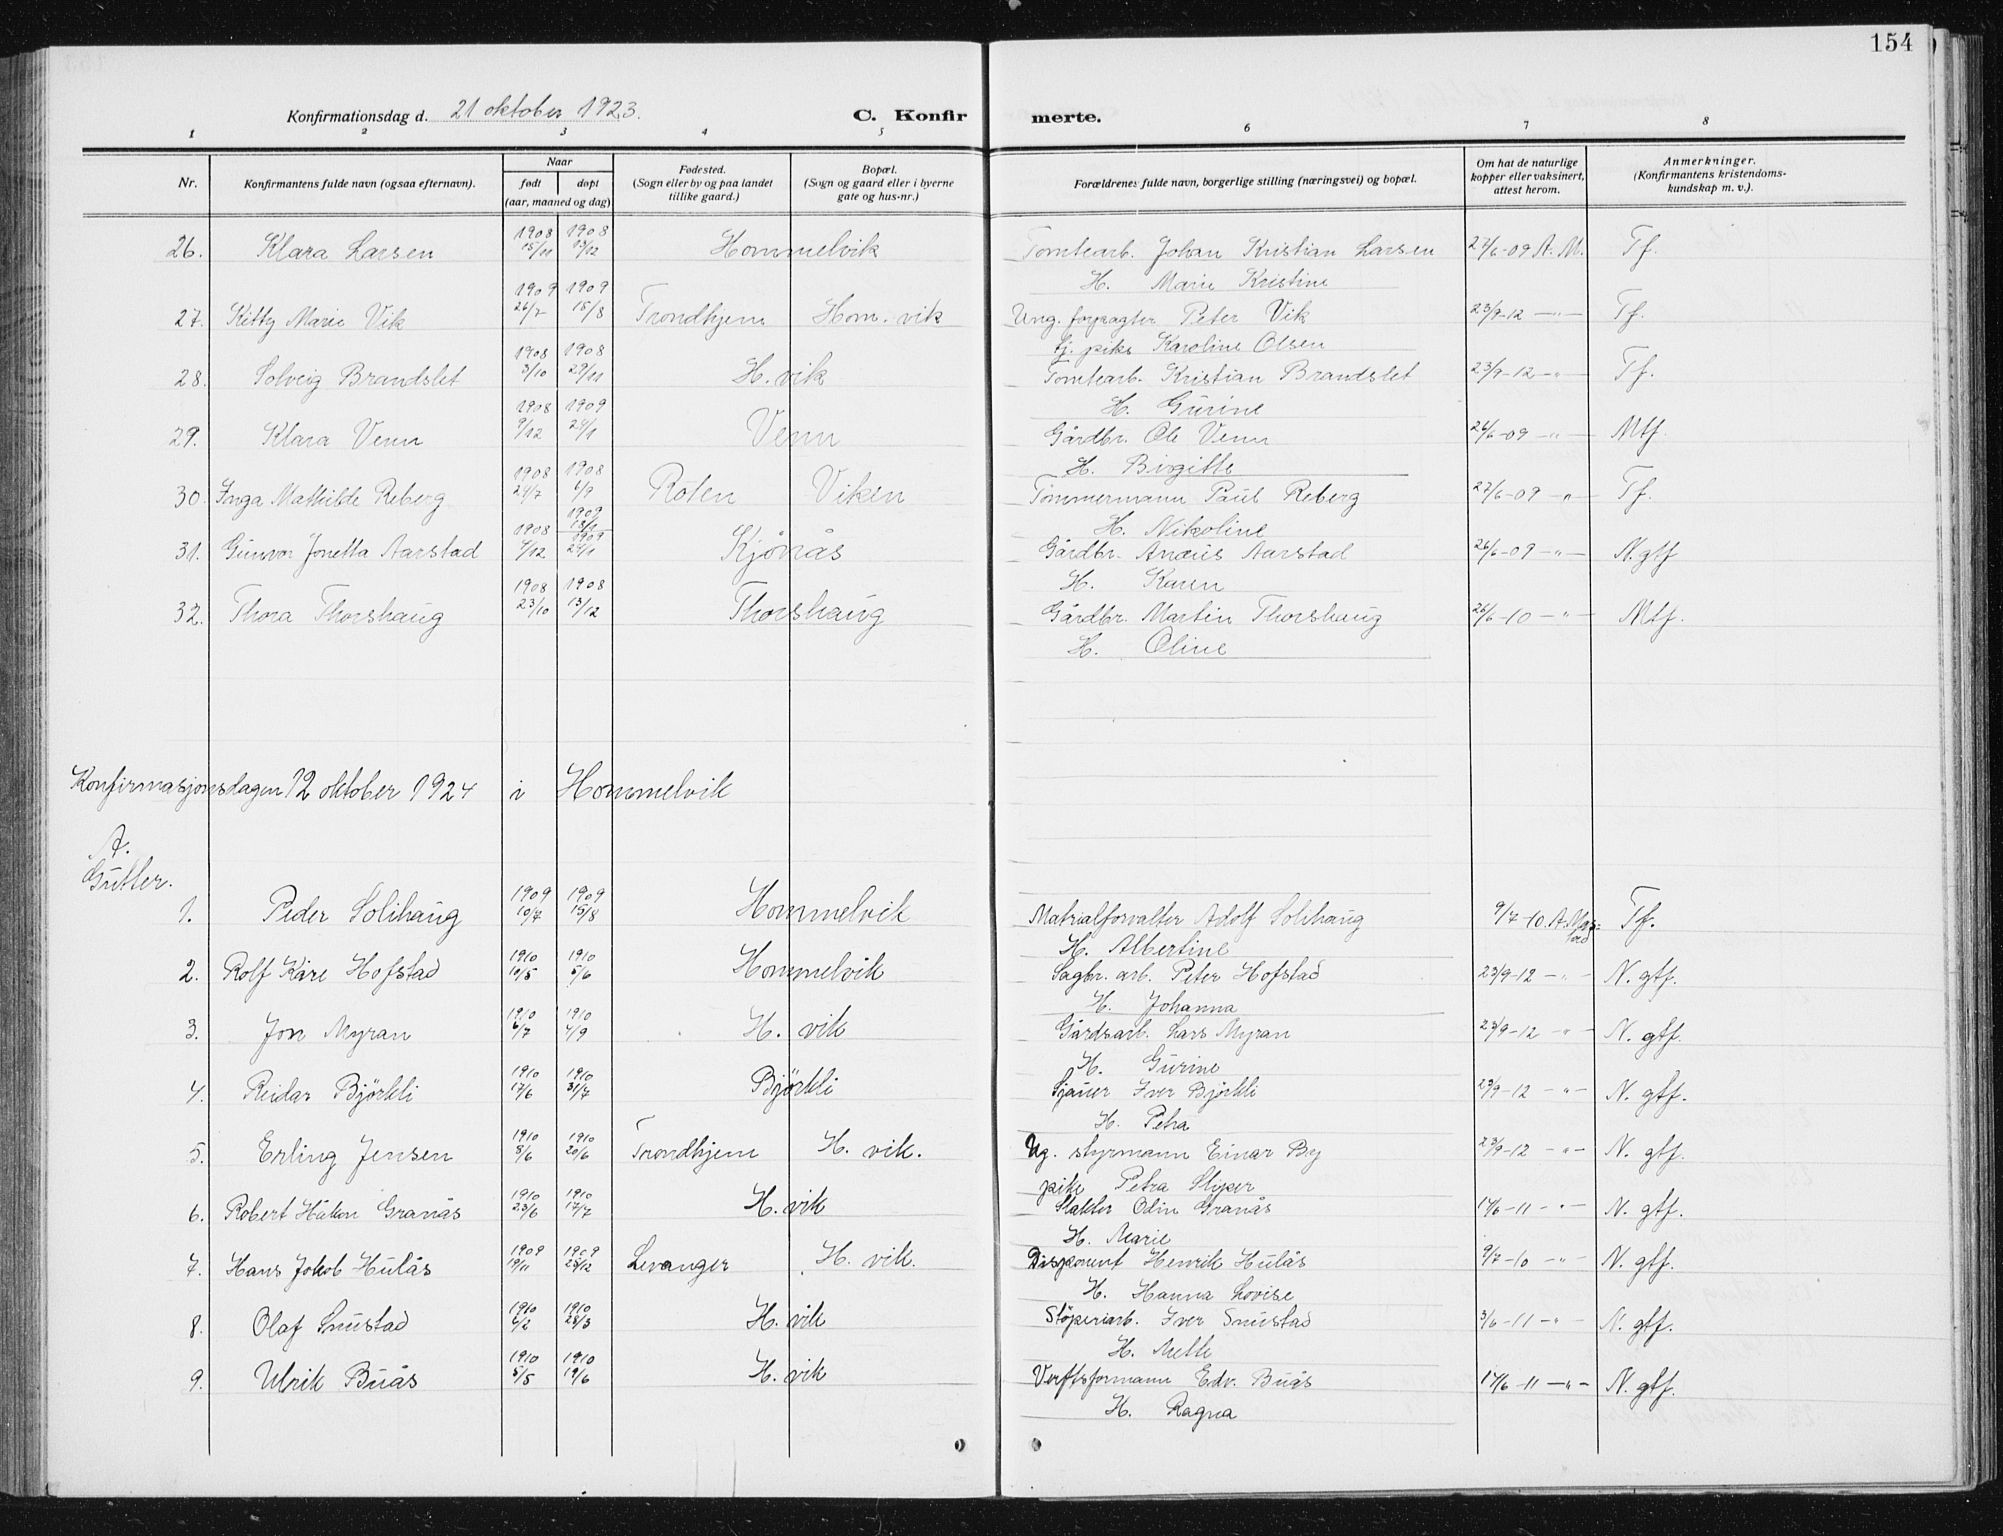 154
Konfirmationsdag d. 21 oktober 1923. C. Konfirmerte.
1 2 3 4 5 6 7 8
Nr. Konfirmantens fulde navn (ogsaa efternavn). Naar født døpt (aar, maaned og dag) Fødested. (Sogn eller by og paa landet tillike gaard.) Bopæl. (Sogn og gaard eller i byerne gate og hus-nr.) Forældrenes fulde navn, borgerlige stilling (næringsvei) og bopæl. Om hat de naturlige kopper eller vaksinert, attest herom. Anmerkninger. (Konfirmantens kristendoms-kundskap m. v.).
26. Klara Larsen 1908 15/11 1908 13/12 Hommelvik Tomtearb. Johan Kristian Larsen 27/6-09 A. M. Tf.
H. Marie Kristine
27. Kitty Marie Vik 1909 26/7 1909 15/8 Trondhjem Hom. vik Ung. forpagter Peter Vik 23/9-12 -"- Tf.
Gj. pike Karoline Olsen
28. Solveig Brandslet 1908 3/10 1908 29/11 H. vik Tomtearb. Kristian Brandslet 23/9-12 -"- Tf.
H. Gurine
29. Klara Venn 1908 9/12 1909 24/1 Venn Gårdbr. Ole Venn 26/6-09 -"- Mtf.
H. Birgitte
30. Inga Mathilde Reberg 1908 24/7 1908 6/9 Roten Viken Tømmermann Paul Reberg 27/6-09 -"- Tf.
H. Nikoline
31. Gunvor Jonetta Aarstad 1908 4/12 1909 18/1 1909 24/1 Kjönås Gårdbr. Anæus Aarstad 26/6-09 -"- N. gtf
H. Karen
32. Thora Thorshaug 1908 23/10 1908 13/12 Thorshaug Gårdbr. Martin Thorshaug 26/6-10 -"- Mtf.
H. Oline
Konfirmasjonsdagen 12 oktober 1924 i Hommelvik
A.
Gutter.
1. Peder Solihaug 1909 10/7 1909 15/8 Hommelvik Matrialforvalter Adolf Solihaug 9/7-10. Tf.
H. Albertine
2. Rolf Kåre Hofstad 1910 10/5 1910 5/6 Hommelvik Sagbr. arb. Peter Hofstad 23/9-12 -"- N. gtf.
H. Johanna
3. Jon Myran 1910 6/7 1910 4/9 H. vik Gårdsarb. Lars Myran 23/9-12 -"- N. gtf.
H. Gurine
4. Reidar Björkli 1910 17/6 1910 31/7 Björkli Sjauer Iver Björkli 23/9-12 -"- N. gtf.
H. Petra
5. Erling Jensen 1910 8/6 1910 20/6 Trondhjem H. vik. Ug. styrmann Einar By 23/9-12 -"- N. gtf.
pike Petra Sliper
6. Robert Håkon Granås 1910 23/6 1910 17/7 H. vik Slakter Odin Granås 14/6-11 -"- N. gtf.
H. Marie
7. Hans Jakob Hulås 1909 19/11 1909 28/12 Levanger H. vik. Disponent Henrik Hulås 9/7-10 -"- N. gtf.
H. Hanna Lovise
8. Olaf Snustad 1910 6/2 1910 28/3 H. vik Stöperiarb. Iver Snustad 3/6-11 -"- N. gtf.
H. Mette
9. Ulrik Buås 1910 5/5 1910 19/6 H. vik Verftsformann Edv. Buås 14/6-11 -"- N. gtf.
H. Ragna